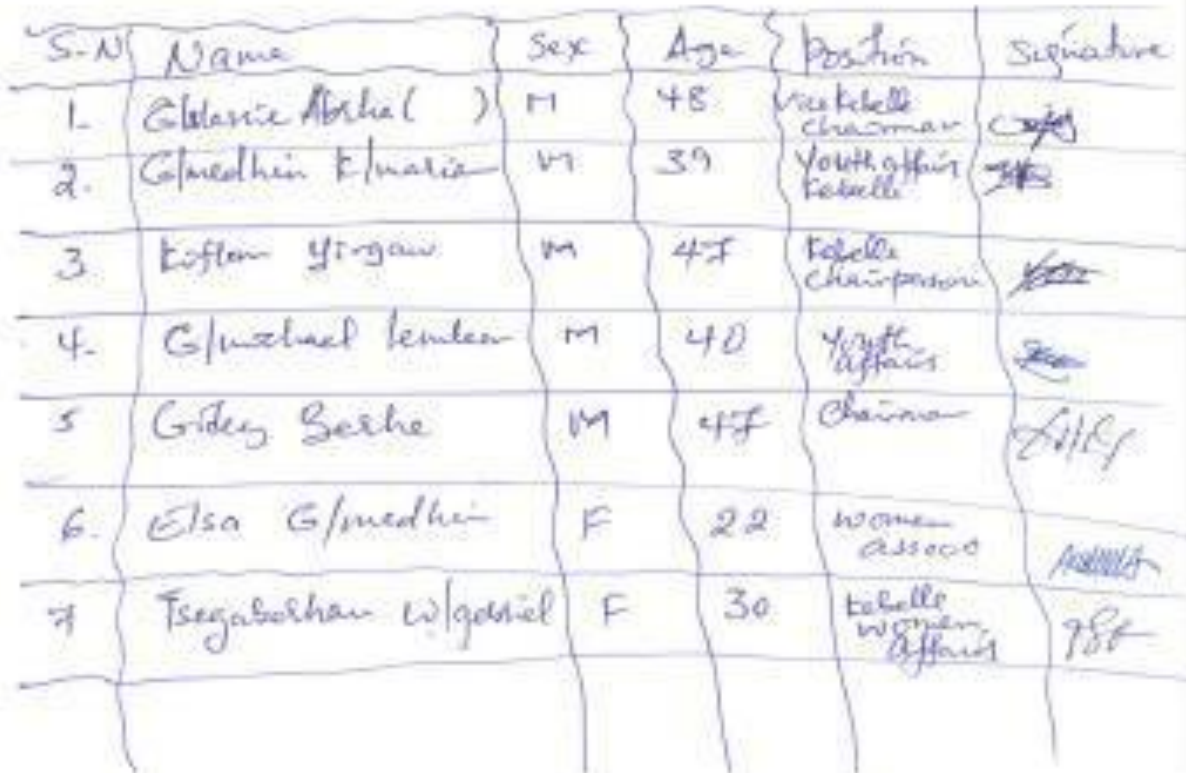 S-N Name Sex Age Position Signature
1. G/ Abrha ( ) M 48 vice kebelle chairman
2. G/medhin K/maria M 39 Youth affair kebelle
3 Kiflom Yirgaw M 47 kebelle chairperson
4. G/michael M 40 Youth affairs
5 Gidey M 47 Chairman
6. Elsa G/medhin F 22 women assoco
7 W/gabriel F 30 kebelle women affairs